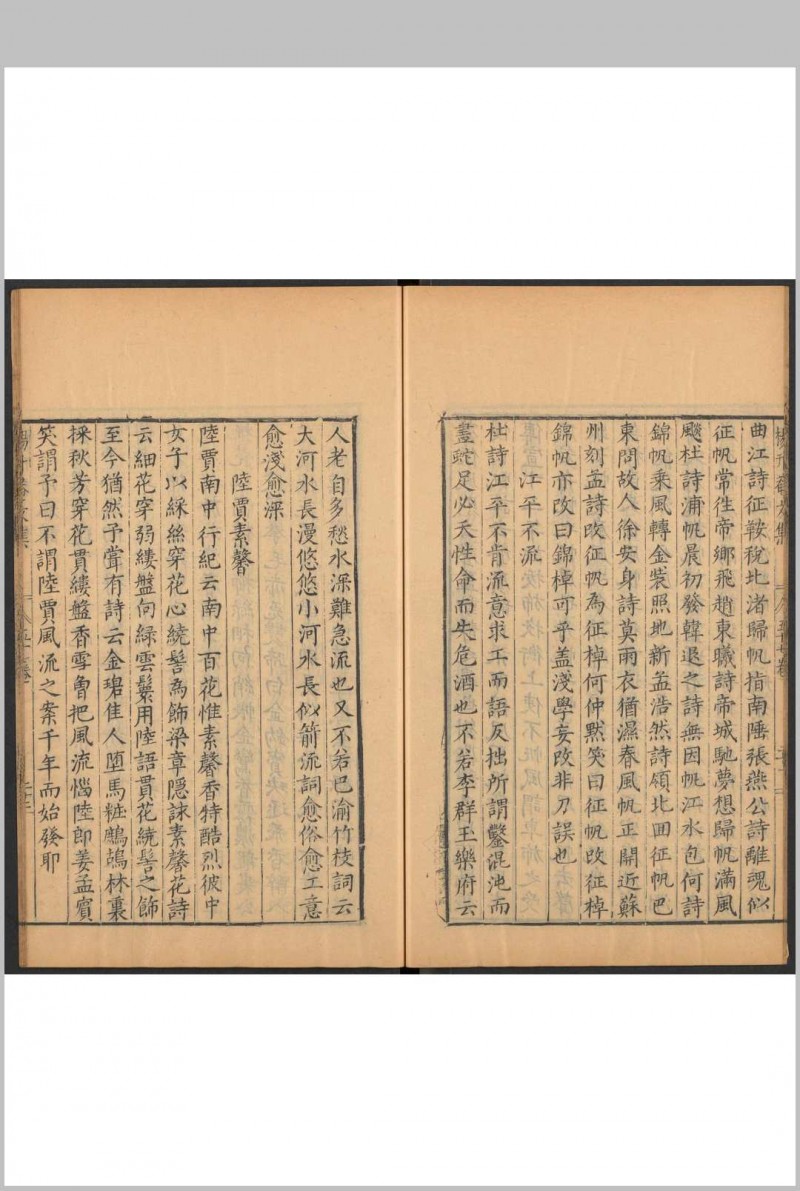 曲江詩征鞍稅北渚歸帆指南陲張燕公詩離魂似
征帆常徃帝鄉飛趙東曦詩帝城馳夢想歸帆滿風
飈杜詩浦帆晨初發韓退之詩無因帆江水包何詩
錦帆乘風轉金裝照地新孟浩然詩嶺北回征帆巴
東問故人徐安身詩莫雨衣猶濕春風帆正開近蘇
州刻孟詩改征帆為征棹何仲黙笑曰征帆改征棹
錦帆亦改曰錦棹可乎盖淺學妄改非刀誤也
江平不流
杜詩江平不肯流意求工而語反拙所謂鑿混沌而
畫蛇足必夭性命而失危酒也不若李群玉樂府云
人老自多愁水深難急流也又不若巴渝竹枝詞云
大河水長漫悠悠小河水長似箭流詞愈俗愈工意
愈淺愈深
陸賈素馨
陸賈南中行紀云南中百花惟素馨香特酷烈彼中
女子以綵絲穿花心繞髻為飾梁章隱詠素馨花詩
云細花穿弱縷盤向綠雲鬟用陸語貫花繞髻之飾
至今猶然予嘗有詩云金碧佳人墮馬粧鷓鴣林裏
採秋芳穿花貫縷盤香雪曾把風流惱陸郎姜孟賓
笑謂予曰不謂陸賈風流之案千年而始發耶